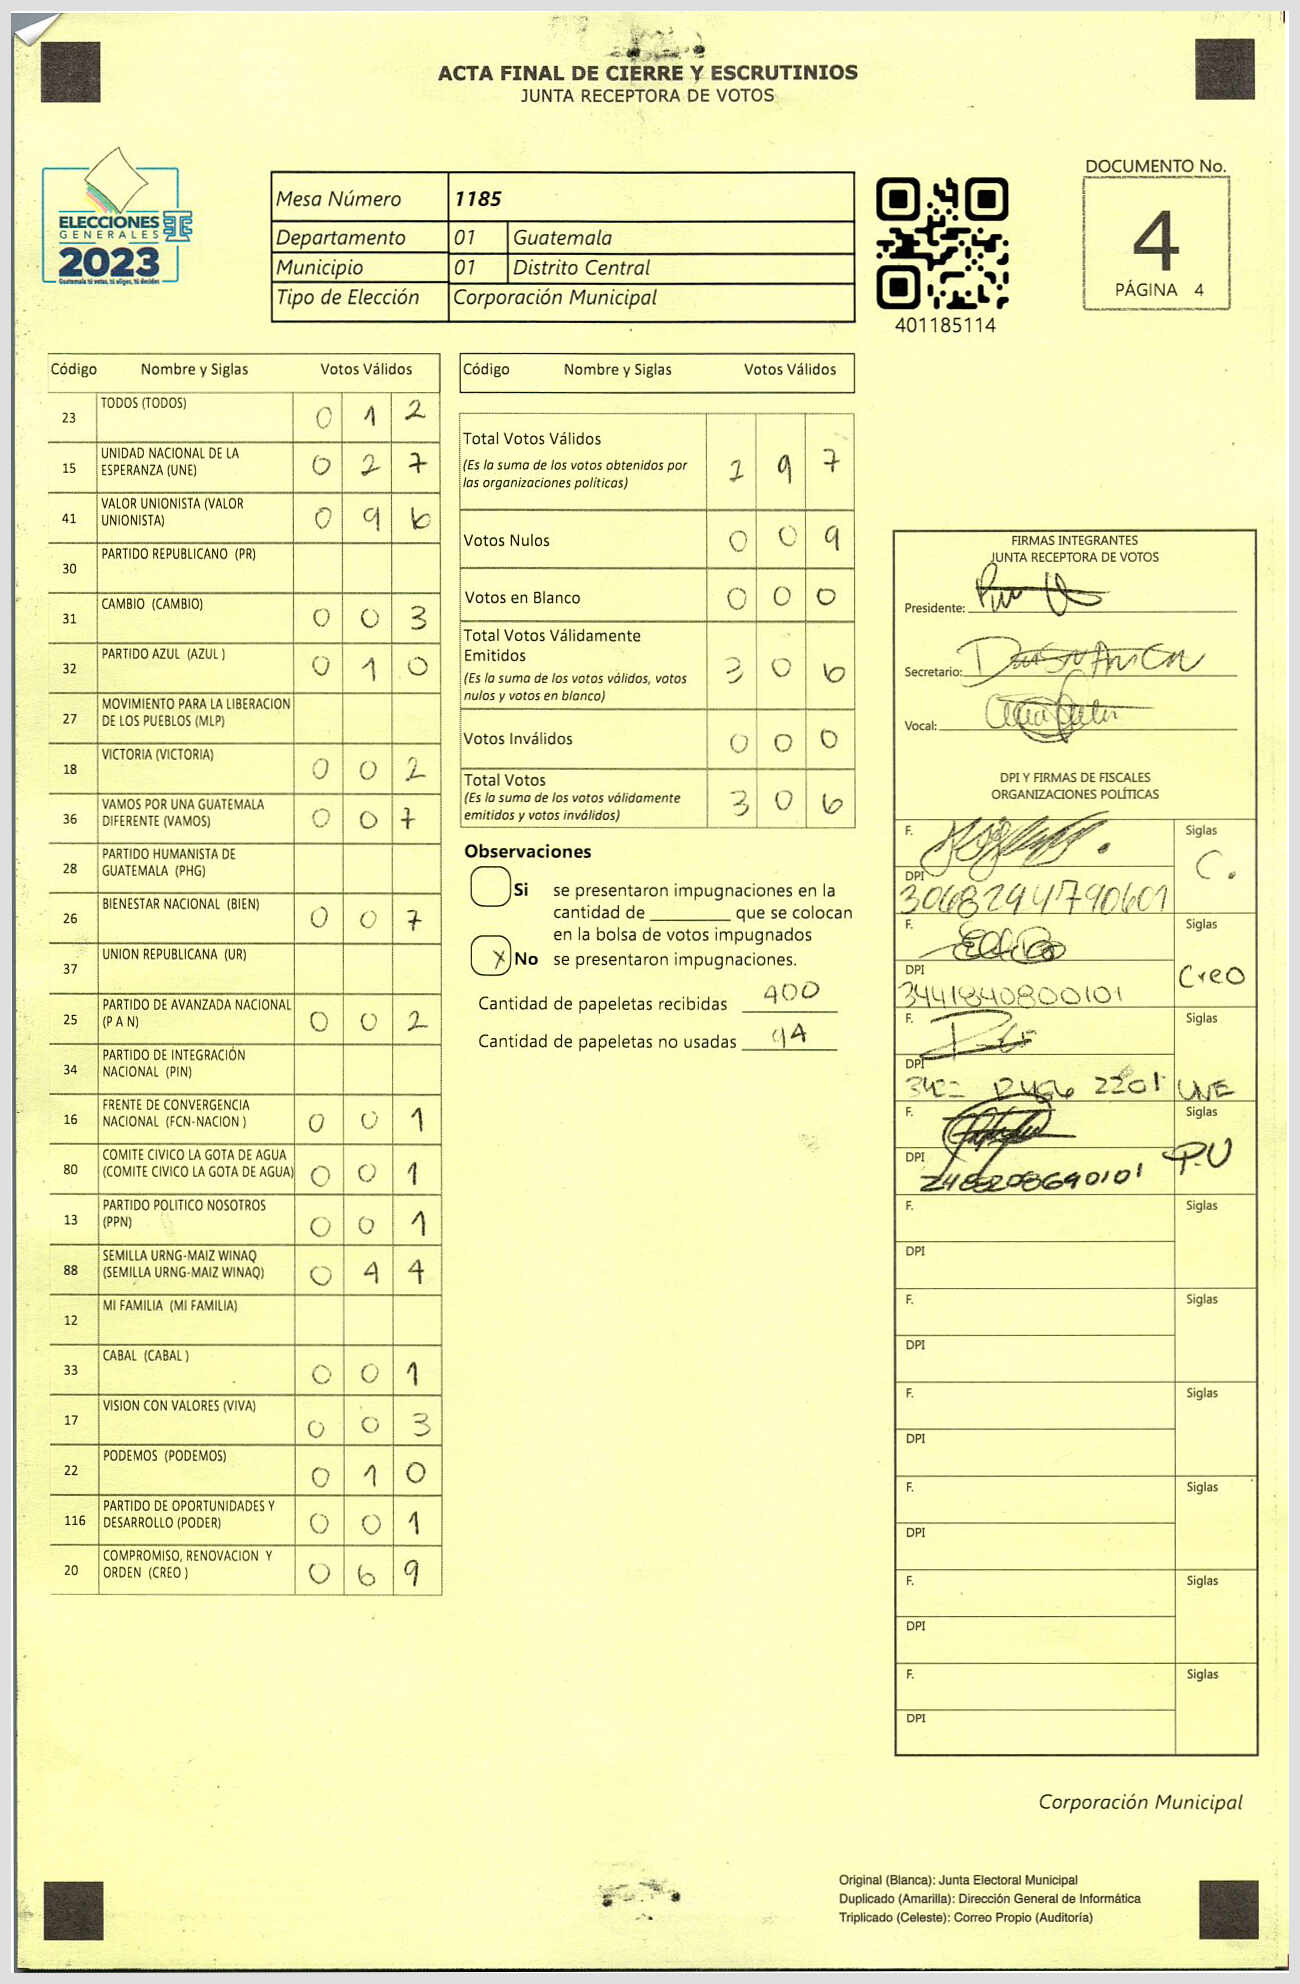 ACTA FINAL DE CIERRE Y ESCRUTINIOS
JUNTA RECEPTORA DE VOTOS
ELECCIONES
GENERALES
2023
Guatemala tú votas, tú eliges, tú decides
Mesa Número 1185
Departamento 01 Guatemala
Municipio 01 Distrito Central
Tipo de Elección Corporación Municipal
401185114
DOCUMENTO No.
4
PÁGINA 4
Código Nombre y Siglas Votos Válidos
23 TODOS (TODOS) 0 1 2
15 UNIDAD NACIONAL DE LA
ESPERANZA (UNE) 0 2 7
41 VALOR UNIONISTA (VALOR
UNIONISTA) 0 9 6
30 PARTIDO REPUBLICANO (PR)
31 CAMBIO (CAMBIO) 0 0 3
32 PARTIDO AZUL (AZUL ) 0 1 0
27 MOVIMIENTO PARA LA LIBERACION
DE LOS PUEBLOS (MLP)
18 VICTORIA (VICTORIA) 0 0 2
36 VAMOS POR UNA GUATEMALA
DIFERENTE (VAMOS) 0 0 7
28 PARTIDO HUMANISTA DE
GUATEMALA (PHG)
26 BIENESTAR NACIONAL (BIEN) 0 0 7
37 UNION REPUBLICANA (UR)
25 PARTIDO DE AVANZADA NACIONAL
(P A N) 0 0 2
34 PARTIDO DE INTEGRACIÓN
NACIONAL (PIN)
16 FRENTE DE CONVERGENCIA
NACIONAL (FCN-NACION ) 0 0 1
80 COMITE CIVICO LA GOTA DE AGUA
(COMITE CIVICO LA GOTA DE AGUA) 0 0 1
13 PARTIDO POLITICO NOSOTROS
(PPN) 0 0 1
88 SEMILLA URNG-MAIZ WINAQ
(SEMILLA URNG-MAIZ WINAQ) 0 4 4
12 MI FAMILIA (MI FAMILIA)
33 CABAL (CABAL ) 0 0 1
17 VISION CON VALORES (VIVA) 0 0 3
22 PODEMOS (PODEMOS) 0 1 0
116 PARTIDO DE OPORTUNIDADES Y
DESARROLLO (PODER) 0 0 1
20 COMPROMISO, RENOVACION Y
ORDEN (CREO ) 0 6 9
Código Nombre y Siglas Votos Válidos
Total Votos Válidos 2 9 7
(Es la suma de los votos obtenidos por
las organizaciones políticas)
Votos Nulos 0 0 9
Votos en Blanco 0 0 0
Total Votos Válidamente
Emitidos 3 0 6
(Es la suma de los votos válidos, votos
nulos y votos en blanco)
Votos Inválidos 0 0 0
Total Votos 3 0 6
(Es la suma de los votos válidamente
emitidos y votos inválidos)
Observaciones
Si se presentaron impugnaciones en la
cantidad de ________ que se colocan
en la bolsa de votos impugnados
X No se presentaron impugnaciones.
Cantidad de papeletas recibidas 400
Cantidad de papeletas no usadas 94
FIRMAS INTEGRANTES
JUNTA RECEPTORA DE VOTOS
Presidente:
Secretario:
Vocal:
DPI Y FIRMAS DE FISCALES
ORGANIZACIONES POLÍTICAS
F. Siglas
C.
DPI
3068294790601
F. Siglas
Creo
DPI
3441840800101
F. Siglas
DPI
2201 UNE
F. Siglas
P.U
DPI
F. Siglas
DPI
F. Siglas
DPI
F. Siglas
DPI
F. Siglas
DPI
F. Siglas
DPI
F. Siglas
DPI
Corporación Municipal
Original (Blanca): Junta Electoral Municipal
Duplicado (Amarilla): Dirección General de Informática
Triplicado (Celeste): Correo Propio (Auditoría)